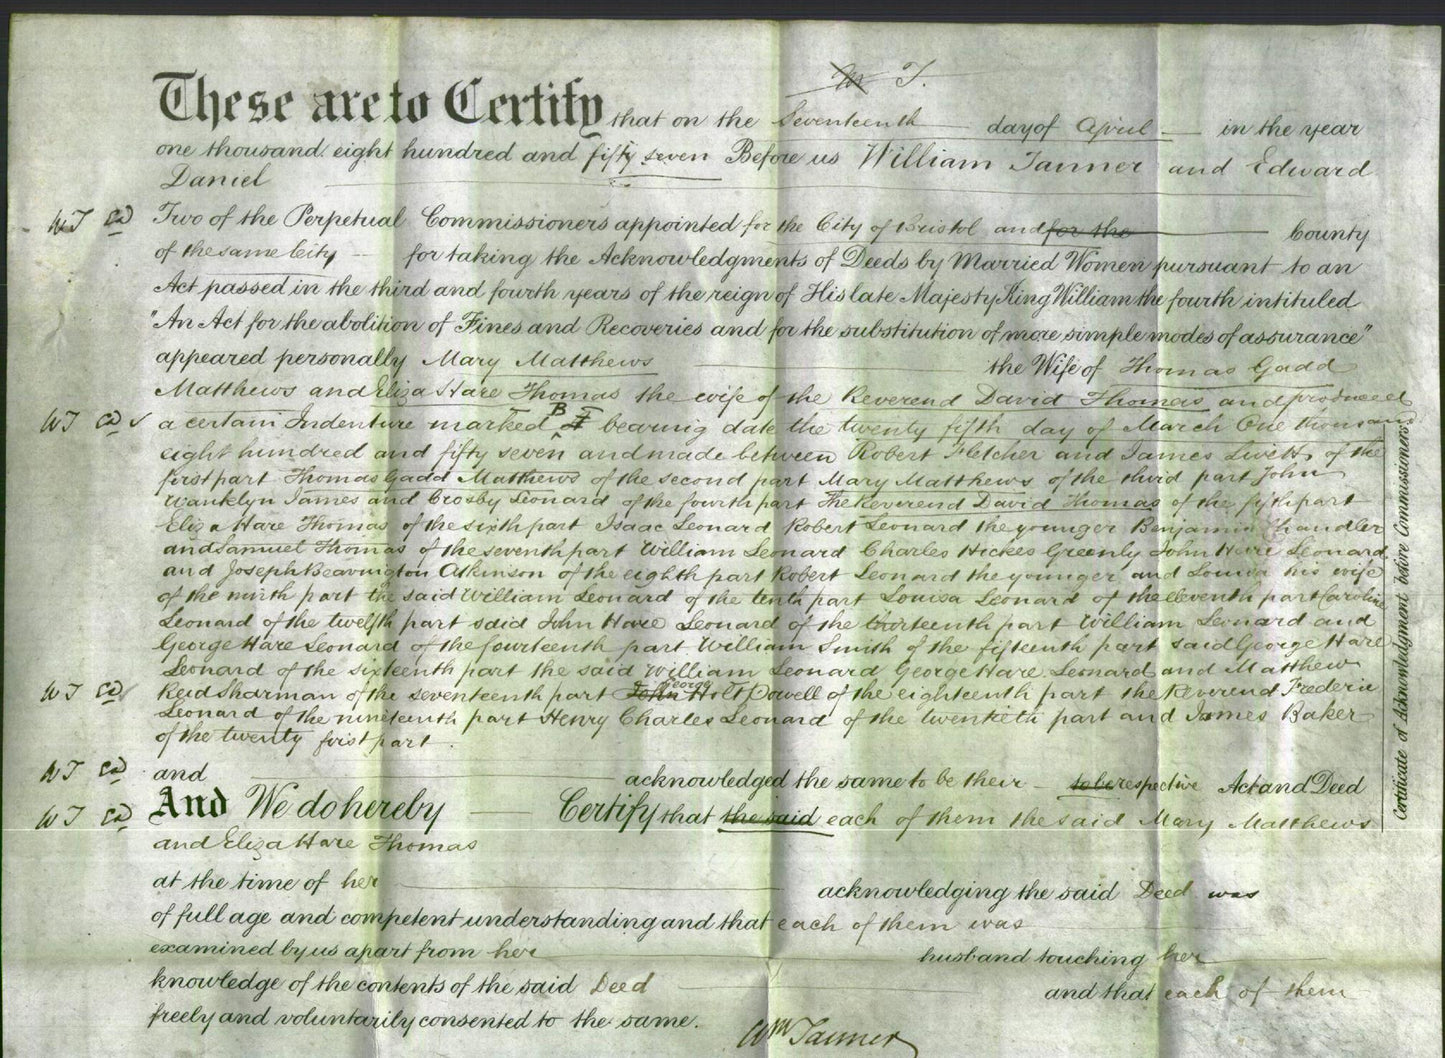 T.
These are to Certify that on the Seventeenth day of April in the year
one thousand eight hundred and fifty seven Before us William Tanner and Edward
Daniel
WT ED Two of the Perpetual Commissioners appointed for the City of Bristol and for the County
of the same City for taking the Acknowledgments of Deeds by Married Women pursuant to an
Act passed in the third and fourth years of the reign of His late Majesty King William the fourth intituled
"An Act for the abolition of Fines and Recoveries and for the substitution of more simple modes of assurance"
appeared personally Mary Matthews the Wife of Thomas Gadd
Matthews and Eliza Hare Thomas the wife of the Reverend David Thomas and produced
WT ED a certain Indenture marked B bearing date the twenty fifth day of March One thousand
eight hundred and fifty seven and made between Robert Fletcher and James Livett of the
first part Thomas Gadd Matthews of the second part Mary Matthews of the third part John
Wanklyn James and Crosby Leonard of the fourth part The Reverend David Thomas of the fifth part
Eliza Hare Thomas of the sixth part Isaac Leonard Robert Leonard the younger Benjamin Chandler
and Samuel Thomas of the seventh part William Leonard Charles Hickes Greenly John Hare Leonard
and Joseph Beavington Atkinson of the eighth part Robert Leonard the younger and Louisa his wife
of the ninth part the said William Leonard of the tenth part Louisa Leonard of the eleventh part Caroline
Leonard of the twelfth part said John Hare Leonard of the thirteenth part William Leonard and
George Hare Leonard of the fourteenth part William Smith of the fifteenth part said George Hare
Leonard of the sixteenth part the said William Leonard George Hare Leonard and Matthew
WT ED Reid Sharman of the seventeenth part John George Holt Powell of the eighteenth part the Reverend Frederic
Leonard of the nineteenth part Henry Charles Leonard of the twentieth part and James Baker
of the twenty first part.
WT ED and acknowledged the same to be their to be respective Act and Deed
WT ED And We do hereby Certify that the said each of them the said Mary Matthews
and Eliza Hare Thomas
at the time of her acknowledging the said Deed was
of full age and competent understanding and that each of them was
examined by us apart from her husband touching her
knowledge of the contents of the said Deed and that each of them
freely and voluntarily consented to the same.
Wm Tanner
Certificate of Acknowledgment before Commissioners